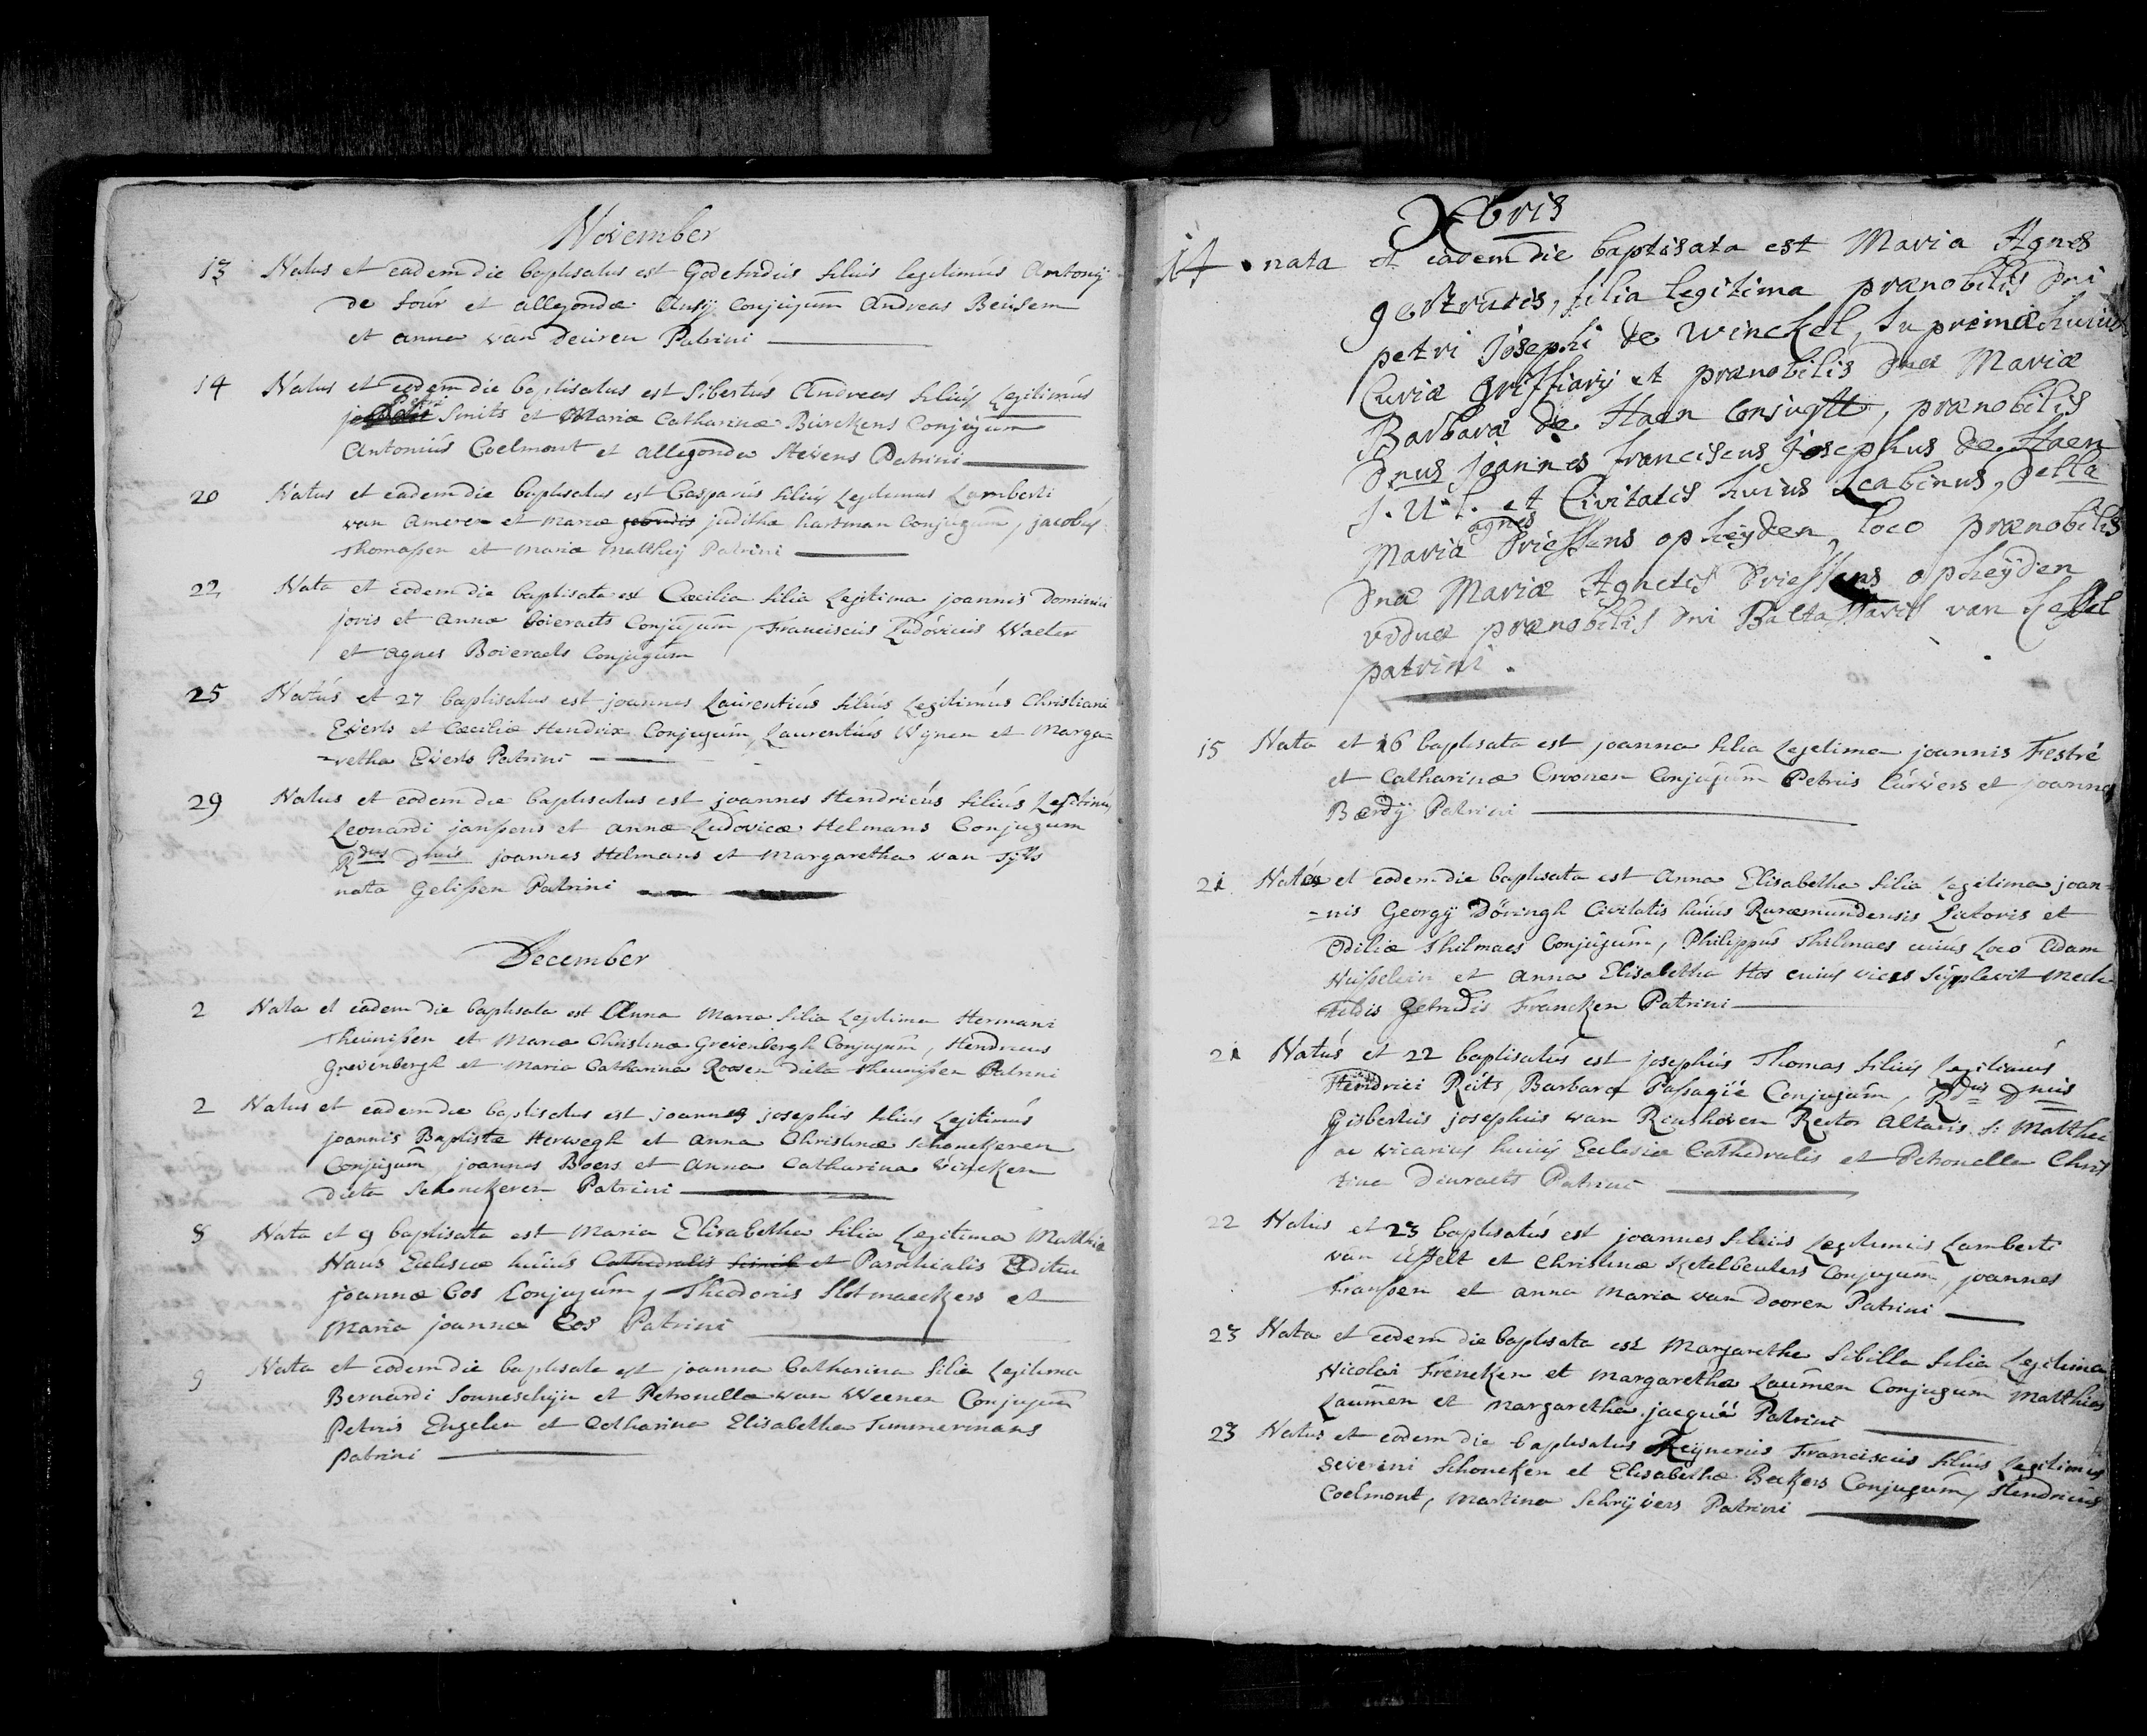 November
13 Natus et eadem die baptisatus est Godefridus filius legitimus Antonij
de four et allegondæ Ansij Conjugum Andreas Beusem
et anna van deuren Patrini
14 Natus et eodem die baptisatus est Sibertus Andreas filius Legitimus
Petri Smits et Mariæ Catharinæ Burckens Conjugum
Antonius Coelmont et allegonda Stevens Patrini
20 Natus et eadem die baptisatus est Casparus filius Legitimus Lamberti
van Ameren et Mariæ judithæ hartman Conjugum, jacobus
Thomassen et Maria Matthij Patrini
22 Nata et eodem die baptisata est Cæcilia filia Legitima joannis Dominici
joris et Annæ Boieraets Conjugum, Franciscus Ludovicus Walter
et agnes Boieraets Conjugum
25 Natus et 27 baptisatus est joannes Laurentius filius Legitimus Christiani
Everts et Cæciliæ Hendrix Conjugum, Laurentius Wynen et Marga=
=retha Everts Patrini
29 Natus et eodem die baptisatus est joannes Hendricus filius Legitimus
Leonardi janssens et annæ Ludovicæ Helmans Conjugum
Rdus Dnus joannes Helmans et Margaretha van
nata Gelissen Patrini
December
2 Nata et eadem die baptisata est Anna Maria filia Legitima Hermani
Theunissen et Mariæ Christinæ Grevenbergh Conjugum, Hendricus
Grevenbergh et Maria Catharina Roosen dicta Theunissen Patrini
2 Natus et eadem die baptisatus est joannes josephus filius Legitimus
joannis Baptistæ Herwegh et Anna Christinæ Schonckeren
Conjugum, joannes Boers et Anna Catharina
dicta Schonckeren Patrini
8 Nata et 9 baptisata est Maria Elisabetha filia Legitima Matthiæ
Haus Ecclesiæ huius Cathedralis et Parochialis Æditui
joannæ Cos Conjugum, Theodorus Slotmaeckers et
Maria joanna Cos Patrini
9 Nata et eodem die baptisata est joanna Catharina filia Legitima
Bernardi Sonneschijn et Petronella van Weenen Conjugum
Petrus Engelen et Catharina Elisabetha Timmermans
patrini
Xbris
14 nata et eadem die baptisata est Maria Agnes
gertrudis, filia legitima prænobilis Dni
petri Josephi de Winckel, supremæ huius
Curiæ griffiarij et prænobilis Dnæ Mariæ
Barbara de Haen Conjugum, prænobilis
Dnus joannes franciscus josephus de Haen
J. U. l. et Civitatis huius Scabinus, Della
Maria agnes Driessens opheyden, loco prænobilis
Dnæ Mariæ Agnetis Driessens opheyden
viduæ prænobilis Dni Baltasaris van Hessel
patrini.
15 Nata et 16 baptisata est joanna filia Legitima joannis Festré
et Catharinæ Croonen Conjugum Petrus Curvers et joanna
Bærdÿ Patrini
21 Nata et eodem die baptisata est Anna Elisabetha filia Legitima joan=
=nis Georgij Döringh Civitatis huius Ruræmundensis Lictoris et
Odiliæ Thilmaes Conjugum, Philippus Thilmaes cuius loco Adam
et Anna Elisabetha Hos cuius vices supplevit Mech=
=tildis Getrudis Francken Patrini
21 Natus et 22 baptisatus est josephus Thomas filius legitimus
Hendrici Ruts Barbara Passagïé Conjugum, Rdus Dnus
Gisbertus josephus van Renshoven Rector Altaris S: Matthei
ac vicarius huius Ecclesiæ Cathedralis et Petronella Chris
tina Dieuraets Patrini
22 Natus et 23 baptisatus est joannes filius Legitimus Lamberti
van Uffelt et Christinæ Ketelbeuters Conjugum, joannes
Franssen et anna Maria van Dooren Patrini
23 Nata et eodem die baptisata est Margaretha Sibilla filia Legitima
Nicolai Frencken et Margaretha Laumen Conjugum Matthias
Laumen et Margaretha jacqué Patrini
23 Natus et eodem die baptisatus Reynerus Franciscus filius Legitimus
Severini Schoncken et Elisabethæ Beckers Conjugum, Hendricus
Coelmont, Martina Schrijvers Patrini